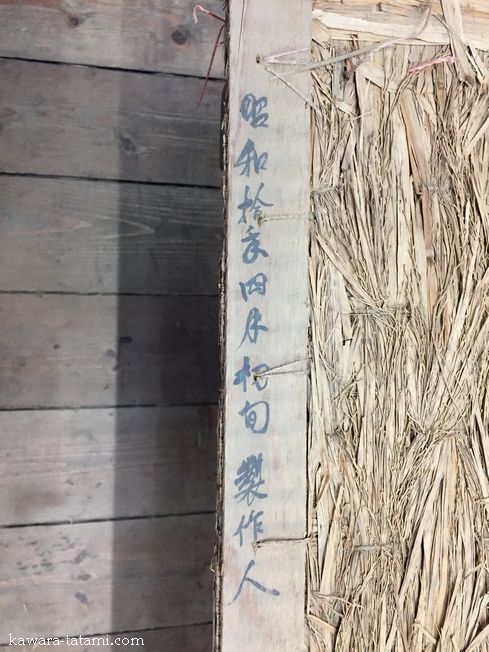 昭和拾年四月初旬 製作人
kawara-tatami.com